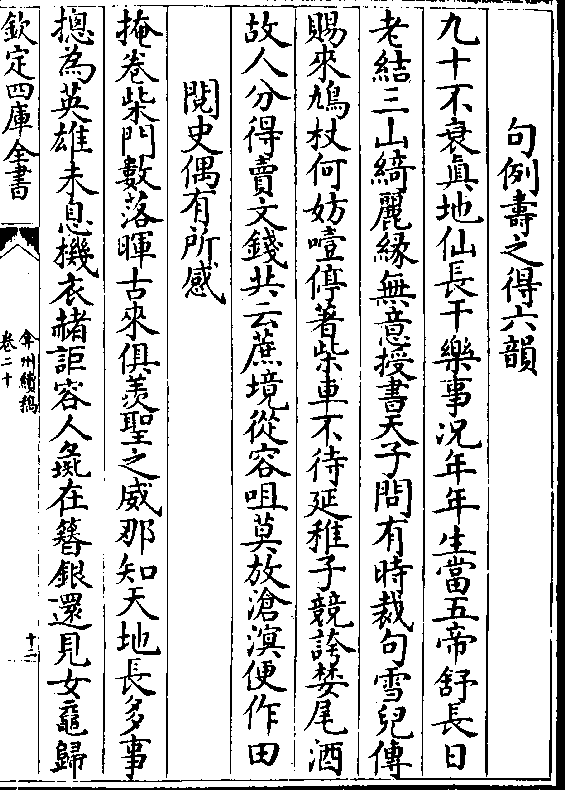 句例壽之得六韻
九十不衰真地仙長干樂事况年年生當五帝舒長日
老結三山綺麗緣無意授書天子問有時裁句雪兒傳
賜來鳩杖何妨噎停著柴車不待延稚子競誇婪尾酒
故人分得賣文錢共云蔗境從容咀莫放滄溟便作田
閱史偶有所感
掩卷柴門數落暉古來俱羡聖之威那知天地長多事
摠為英雄未息機衣赭詎容人彘在簪銀還見女䰟歸
欽定四庫全書
弇州續稿
卷二十
十二